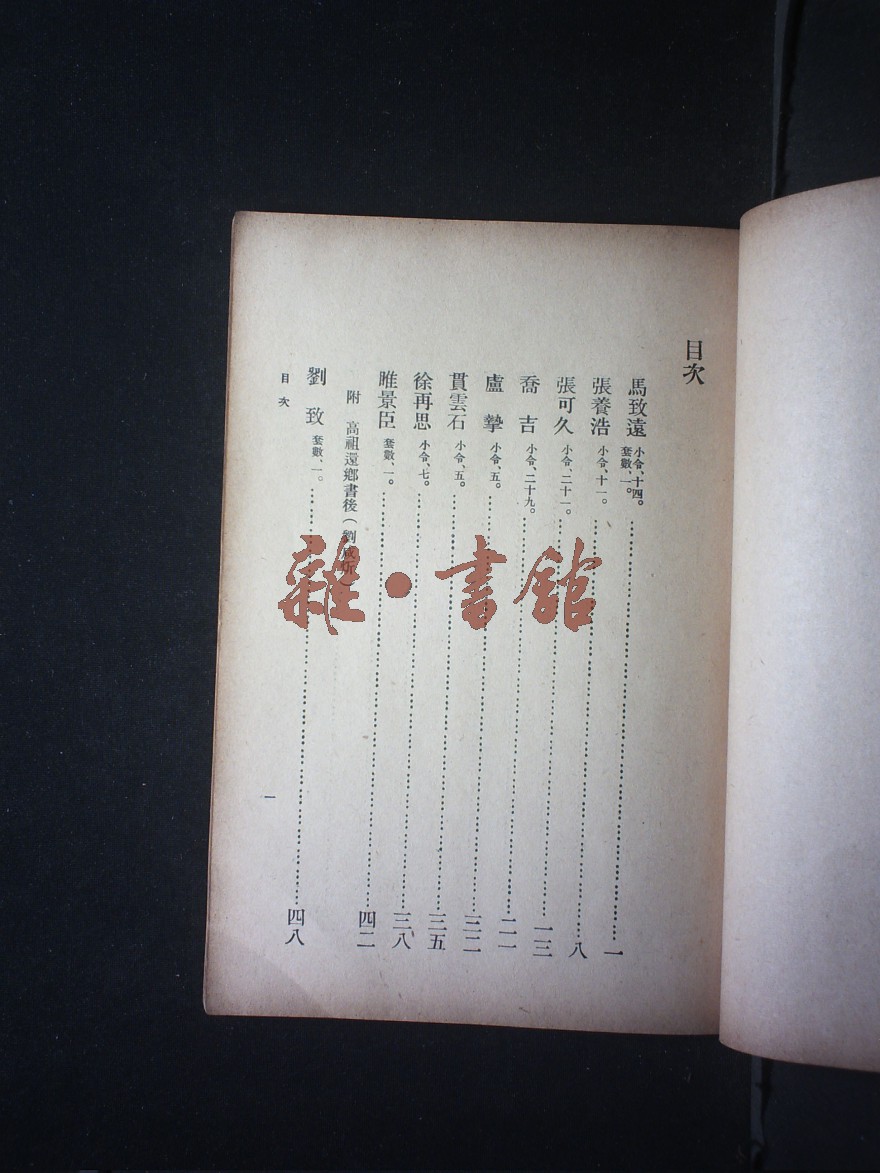 目次
馬致遠 小令、十四。套數、一。……一
張養浩 小令、十一。……八
張可久 小令、二十一。……一三
喬吉 小令、二十九。……二一
盧摯 小令、五。……三二
貫雲石 小令、五。……三五
徐再思 小令、七。……三八
睢景臣 套數、一。……四二
附 高祖還鄉書後（劉
劉致 套數、一。……四八
目次
一
雜·書館